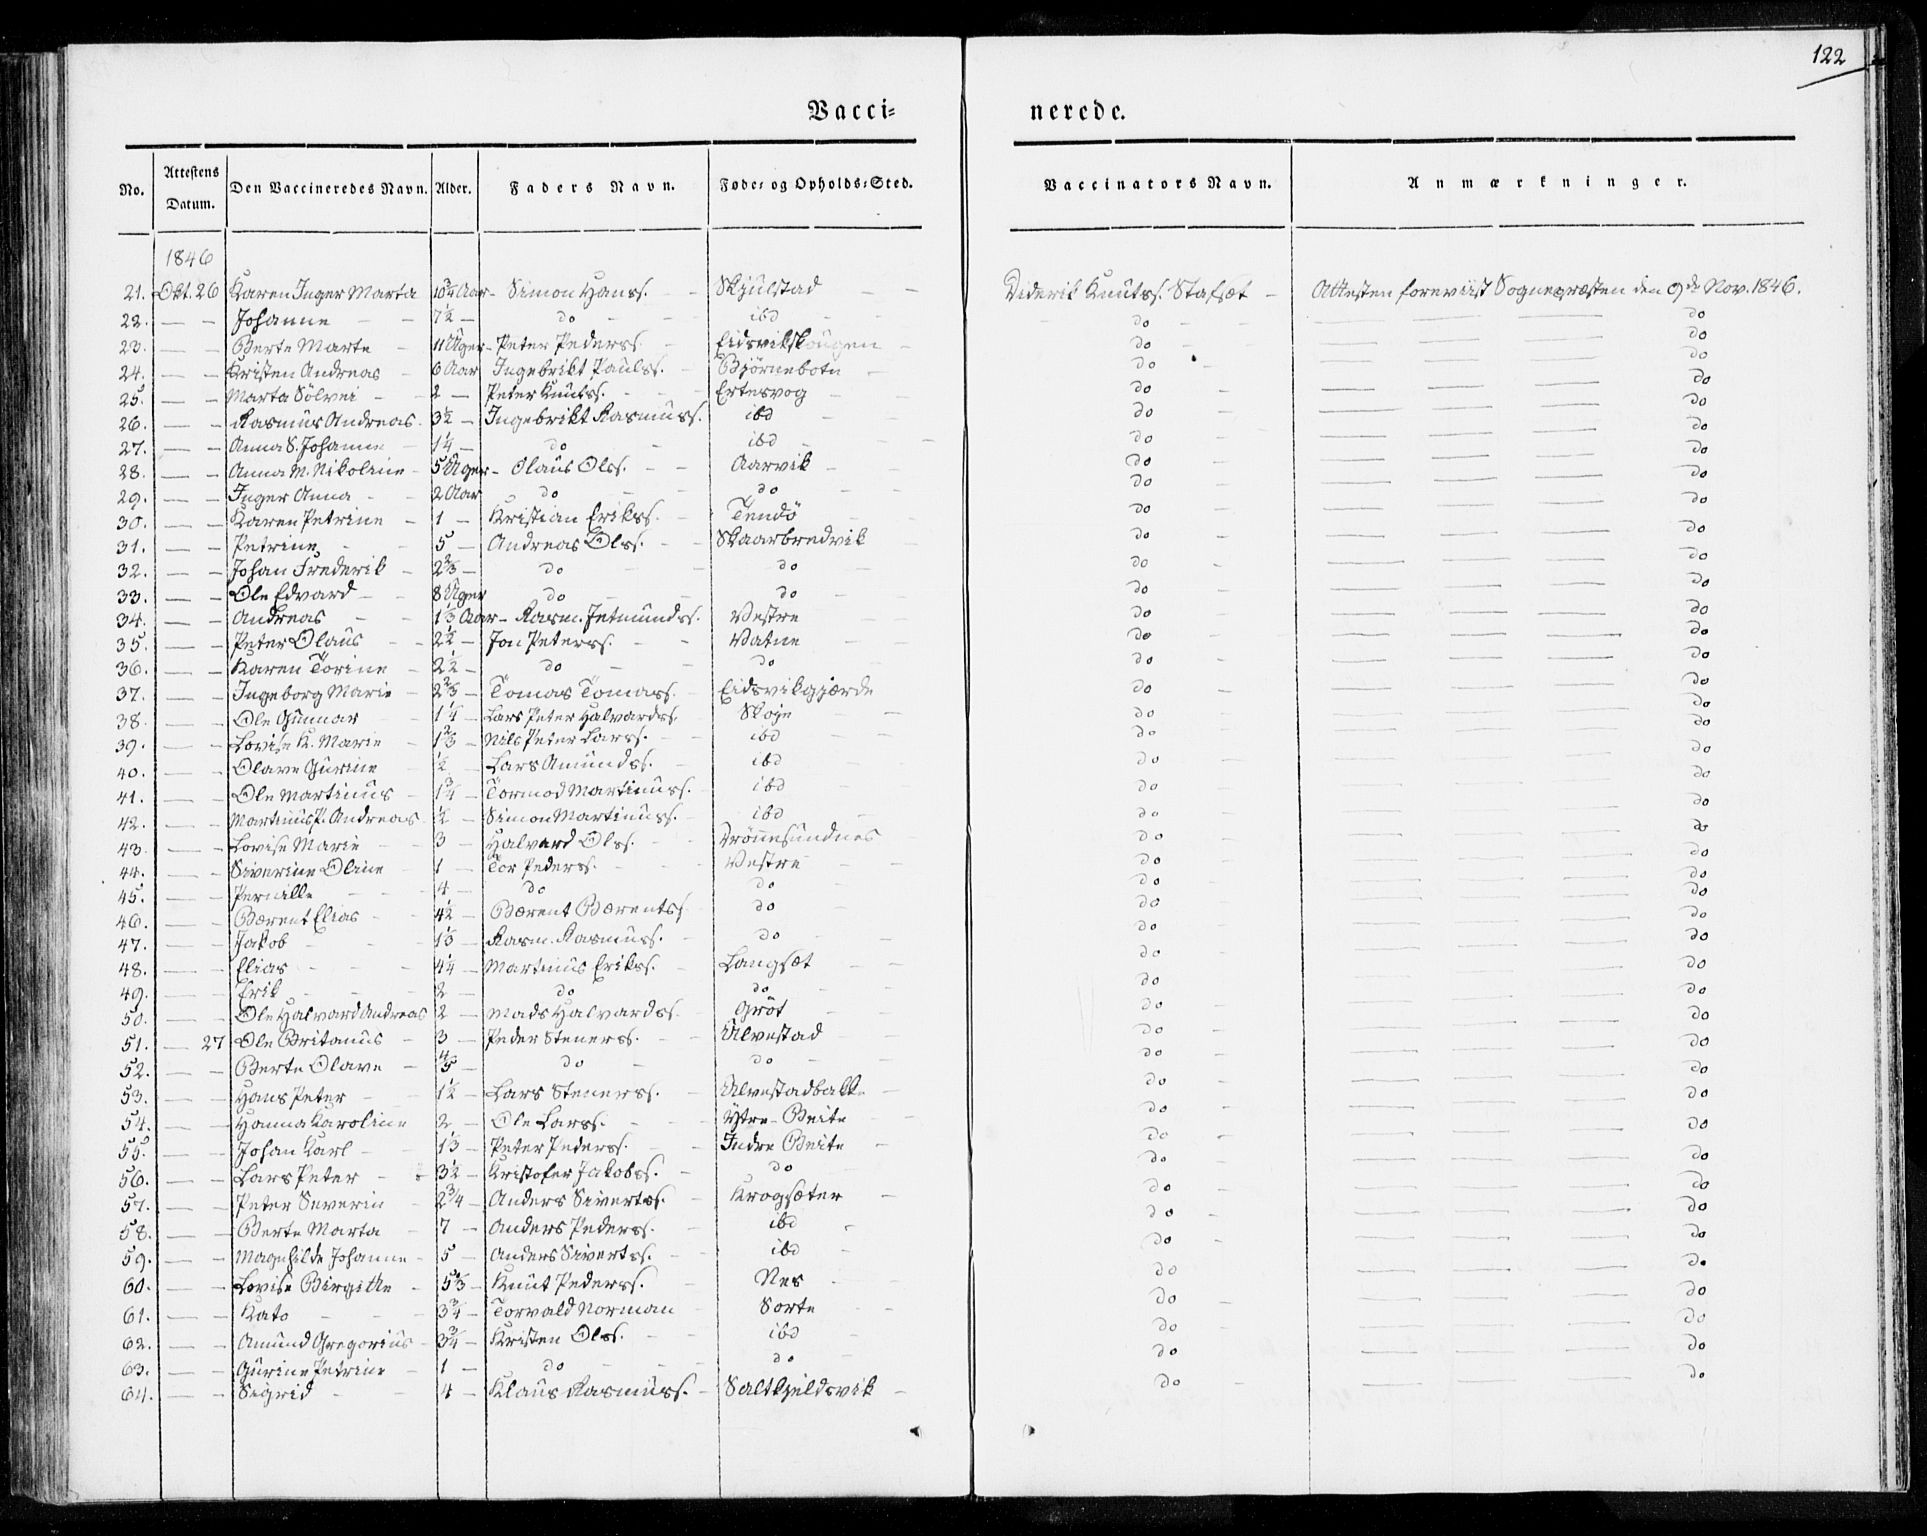 122
Vacci= nerede.
No. Attestens Datum. Den Vaccineredes Navn. Alder. Faders Navn. Føde= og Opholds=Sted. Vaccinators Navn. Anmærkninger.
1846
21. Okt. 26 Karen Inger Marta 10¾ Aar - Simon Hanss. - Skjulstad - - Diderik Knutss. Stafsæt - Attesten foreviist Sognepræsten den 9de Nov. 1846.
22. — — Johanne - - 7½ — do - - ibd - - do - — — — do
23. — — Berte Marte - 11 Uger - Peter Pederss. - Eidsvikskougen - do - — — — do
24. — — Kristen Andreas - 6 Aar Ingebrikt Paulss. - Bjørnebotn - do - — — — do
25. — — Marta Sölvei - 2 — Peter Knutss. - - Ertesvog - - do - — — — do
26. — — Rasmus Andreas - 3½ — Ingebrikt Rasmuss. ibd - - do - — — — do
27. — — Anna S. Johanne - 1¼ — do - ibd - - do - — — — do
28. — — Anna M. Nikoline - 5 Uger - Olaus Olss. - - Aarvik - do - — — — do
29. — — Inger Anna - - 2 Aar do - - do - do - — — — do
30. — — Karen Petrine - 1 — Kristian Erikss. - Tendö - - do - — — — do
31. — — Petrine - - 5 — Andreas Olss. - - Skaarbredvik - do - — — — do
32. — — Johan Frederik - 2⅔ — do - - do - do - — — — do
33. — — Ole Edvard - - 8 Uger do - - do - do - — — — do
34. — — Andreas - - 1⅓ Aar - Rasm. Jetmundss. Vestre - do - — — — do
35. — — Peter Olaus - - 2½ — Jon Peterss. - - Vatne - do - — — — do
36. — — Karen Torine - 2½ — do - - do - do - — — — do
37. — — Ingeborg Marie - 2⅔ — Tomas Tomass. - Eidsvikgjærde do - — — — do
38. — — Ole Gunnar - 1¼ — Lars Peter Halvardss. Skoje - do — — — do
39. — — Lovise K. Marie - 1⅔ — Nils Peter Larss. - ibd - - do - — — — do
40. — — Olave Gurine ½ — Lars Amundss. - ibd - do - — — — do
41. — — Ole Martinus - 1¾ — Tormod Martinuss. - ibd - do - — — — do
42. — — Martinus P. Andreas ½ — Simon Martinuss. - ibd - do - — — — do
43. — — Lovise Marie - 3 — Halvard Olss. - - Drönnesundnes - do - — — — do
44. — — Siverine Oline - 1 — Tor Pederss. - - Vestre - - do - — — — do
45. — — Pernille - - 4 — do - do - do - — — — do
46. — — Bærent Elias - - 4½ — Bærent Bærentss - do - do - — — — do
47. — — Jakob - - 1⅓ — Rasm. Rasmuss. - do - - do - — — — do
48. — — Elias - - 4¼ — Martinus Erikss. - Langsæt - - do - — — — do
49. — — Erik - - 2 — do - do - - do — — — do
50. — — Ole Halvard Andreas 2 — Mads Halvardss. - Gröt - - do - — — — do
51. — 27 Ole Britanus - 3 — Peder Steners. - - Ulvestad - do - — — — do
52. — — Berte Olave - ⅘ — do - do - - do - — — — do
53. — — Hans Peter - - 1½ — Lars Steners. - Ulvestadbakk - do - — — — do
54. — — Hanna Karoline 2 — Ole Larss. - - Ytre-Beite - do - — — — do
55. — — Johan Karl - - 1⅓ — Peter Peders. - Indre Beite - do - — — — do
56. — — Lars Peter - - 3½ — Kristofer Jakobss. - do do - — — — do
57. — — Peter Severin - 2¾ — Anders Sivertss. - Krogsæter - do - — — — do
58. — — Berte Marta - 7 — Anders Pederss. - ibd - do - — — — do
59. — — Magnhilde Johanne - 5 — Anders Sivertss. - ibd - do - — — — do
60. — — Lovise Birgithe - 5⅓ — Knut Pederss. - Nes - do — — — do
61. — — Kato - - 3¾ — Torvald Norman - Sorte - - do - — — — do
62. — — Amund Gregorius - 3¾ — Kristen Olss. - - ibd - do - — — — do
63. — — Gurine Petrine - 1 — do - - - do - do - — — — do
64. — — Sigrid - - 4 — Klaus Rasmuss. - Saltkjeldsvik - do - — — — do